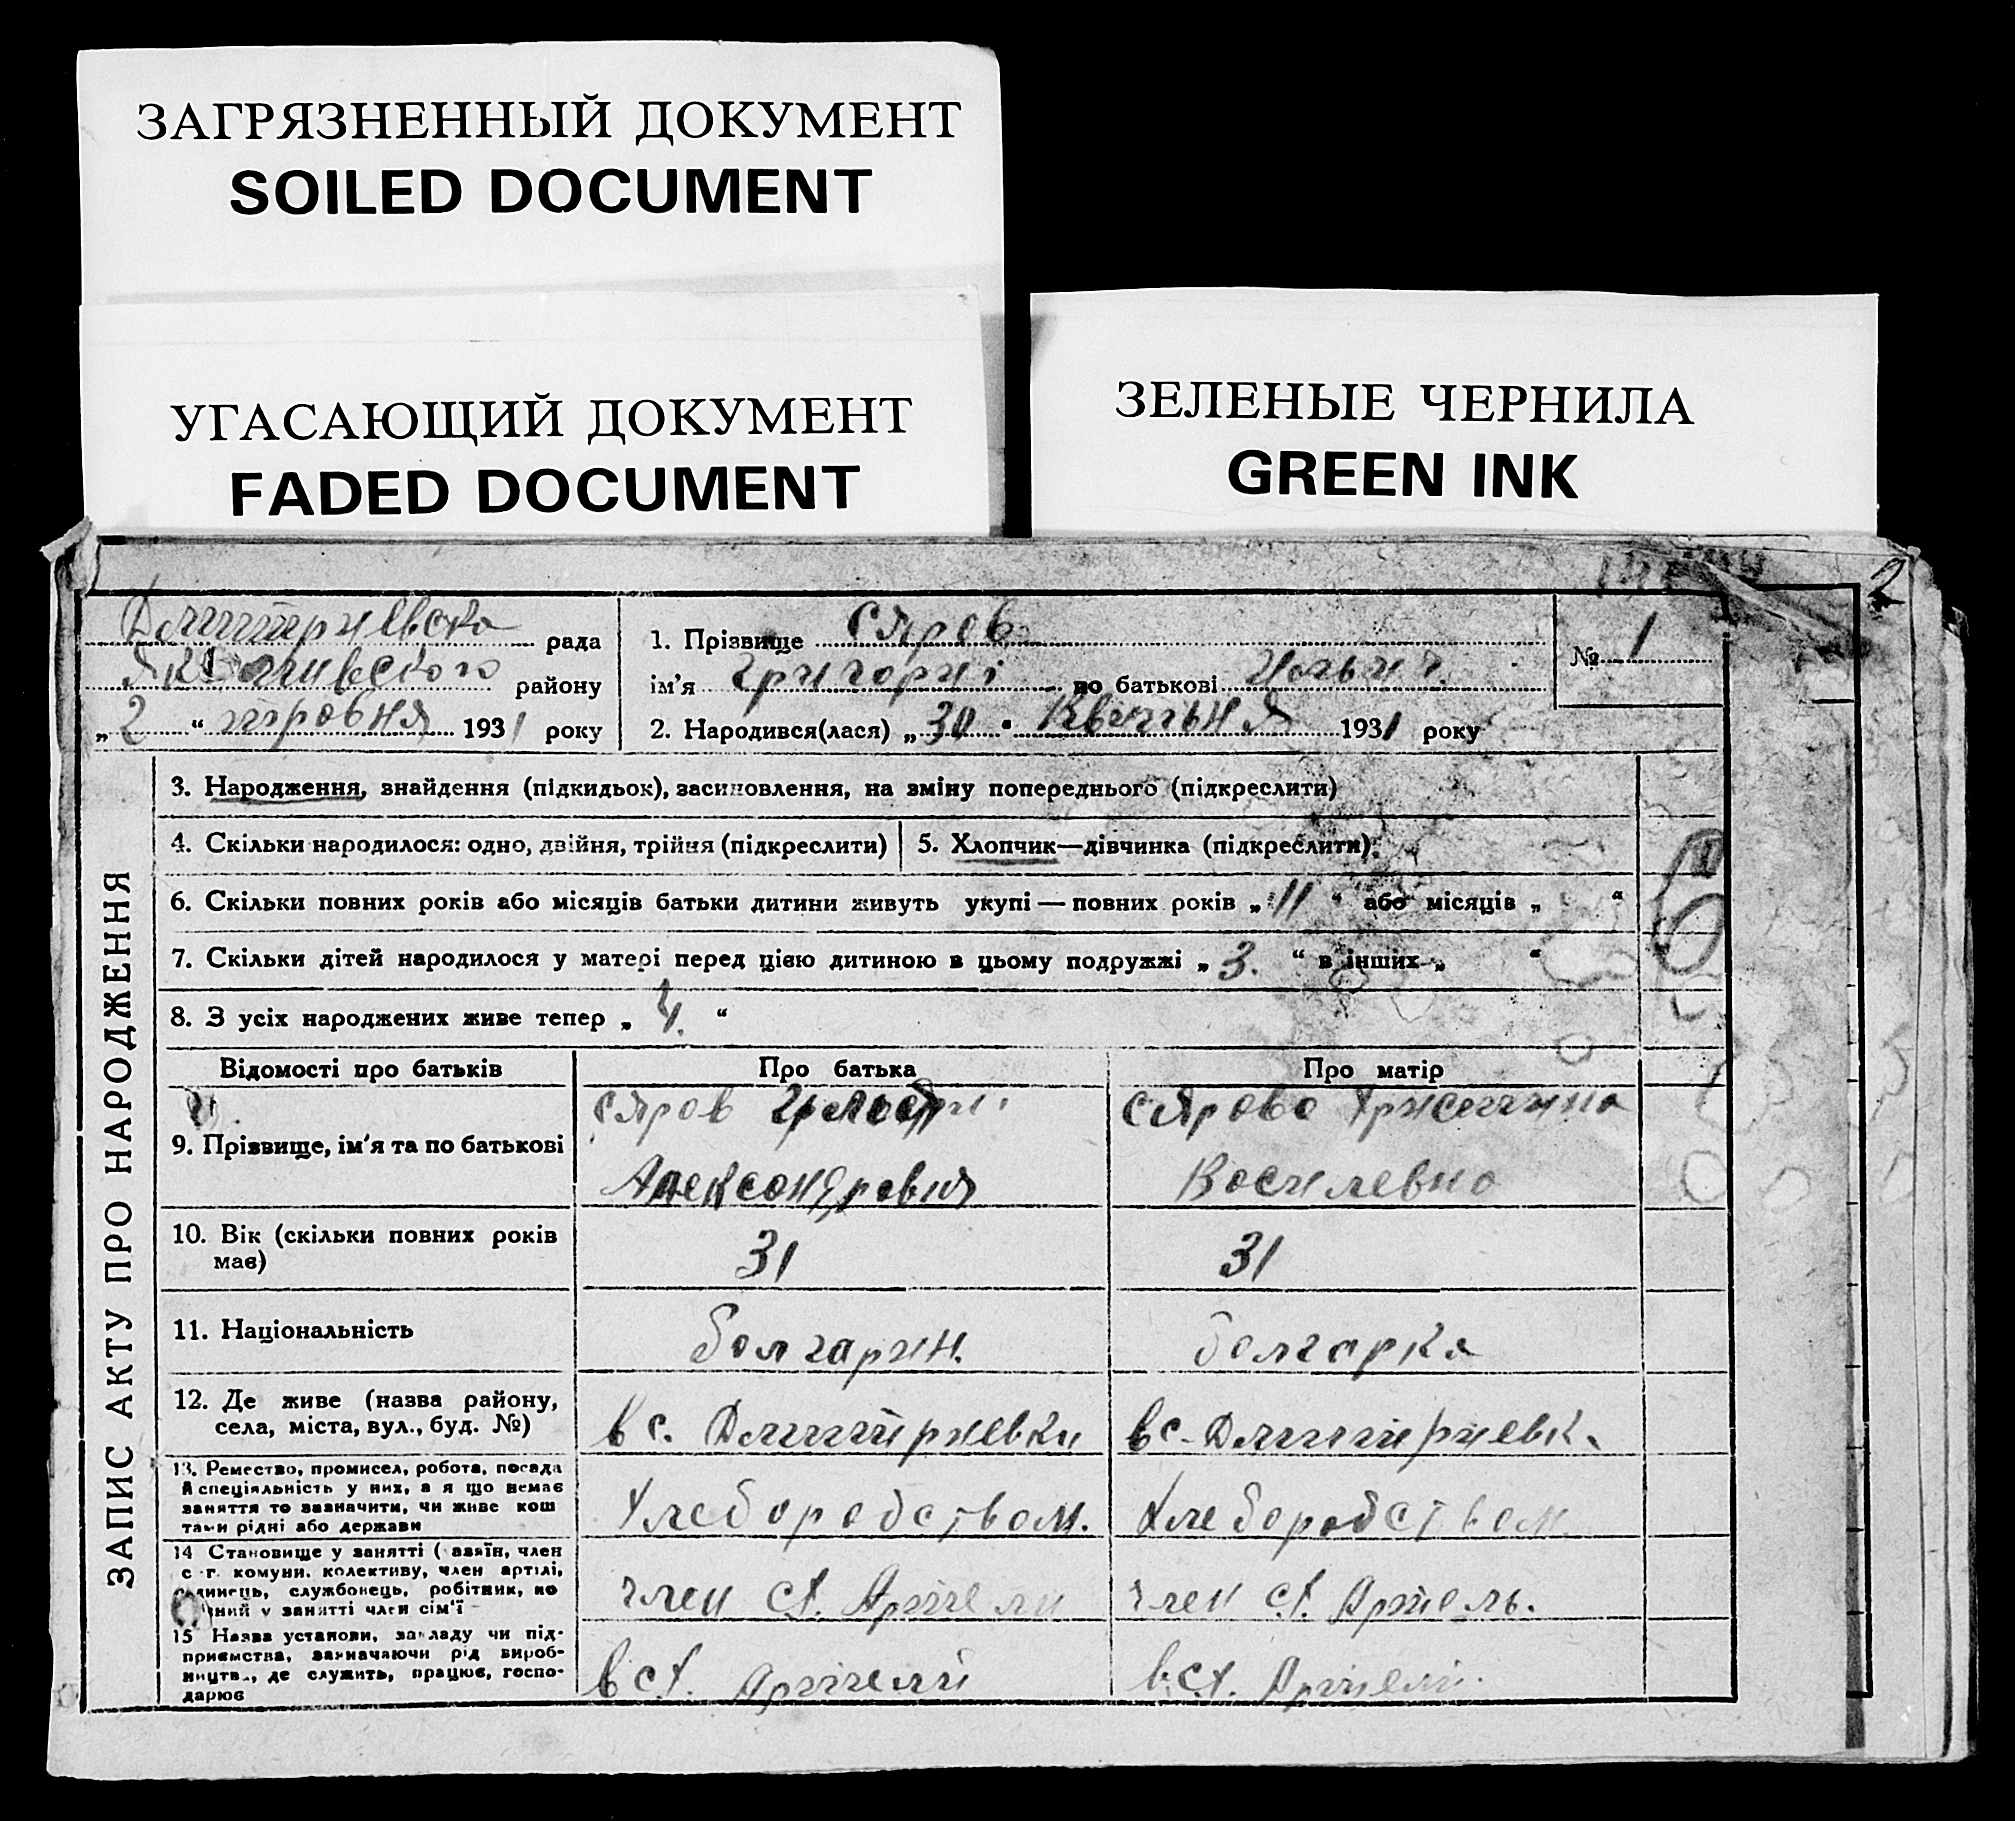 ЗАГРЯЗНЕННЫЙ ДОКУМЕНТ
SOILED DOCUMENT
УГАСАЮЩИЙ ДОКУМЕНТ
FADED DOCUMENT
ЗЕЛЕНЫЕ ЧЕРНИЛА
GREEN INK
2
Дмитриевска рада
району
„ 2 “ травня 1931 року
1. Прізвище Сяров
ім'я Григориі по батькові
2. Народився(лася) „ 30 “ Квитня 1931 року
№ 1
ЗАПИС АКТУ ПРО НАРОДЖЕННЯ
3. Народження, знайдення (підкидьок), засиновлення, на зміну попереднього (підкреслити)
4. Скільки народилося: одно, двійня, трійня (підкреслити)
5. Хлопчик—дівчинка (підкреслити)
6. Скільки повних років або місяців батьки дитини живуть укупі — повних років „ 11 “ або місяців „ “
7. Скільки дітей народилося у матері перед цією дитиною в цьому подружжі „ 3. “ в інших „ “
8. З усіх народжених живе тепер „ 4. “
Відомості про батьків
Про батька
Про матір
9. Прізвище, ім'я та по батькові
Сяров
Александрович
Сярова
Василевна
10. Вік (скільки повних років має)
31
31
11. Національність
болгарин.
болгарка
12. Де живе (назва району,
села, міста, вул., буд. №)
в с. Дмитриевки
в с. Дмитриевк.
13. Ремество, промисел, робота, посада
й спеціяльність у них, а я що немає
заняття то зазначити, чи живе кош
тами рідні або держави
Хлебородством.
Хлебородством
14 Становище у занятті ( азяїн, член
с г. комуни. колективу, член артілі,
службовець, робітник, по
у занятті член сім'ї
член с.г. Артели
член с.г. Артель.
15 Назва установи, закладу чи під-
приємства, зазначаючи рід вироб-
ництв., де служить, працює, госпо-
дарює
в с.г. Артели
в с.г. Артели.